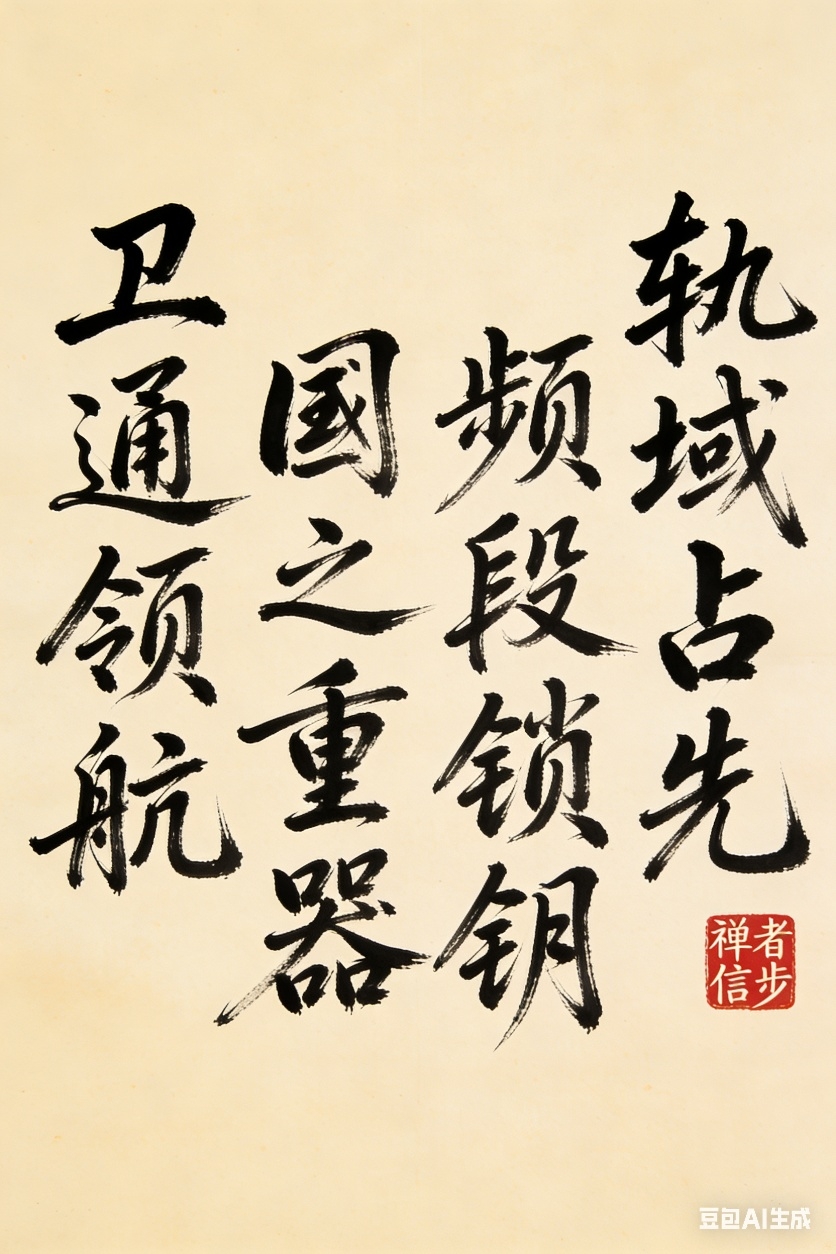 轨域占先
频段锁钥
国之重器
卫通领航
者步
禅信
豆包AI生成